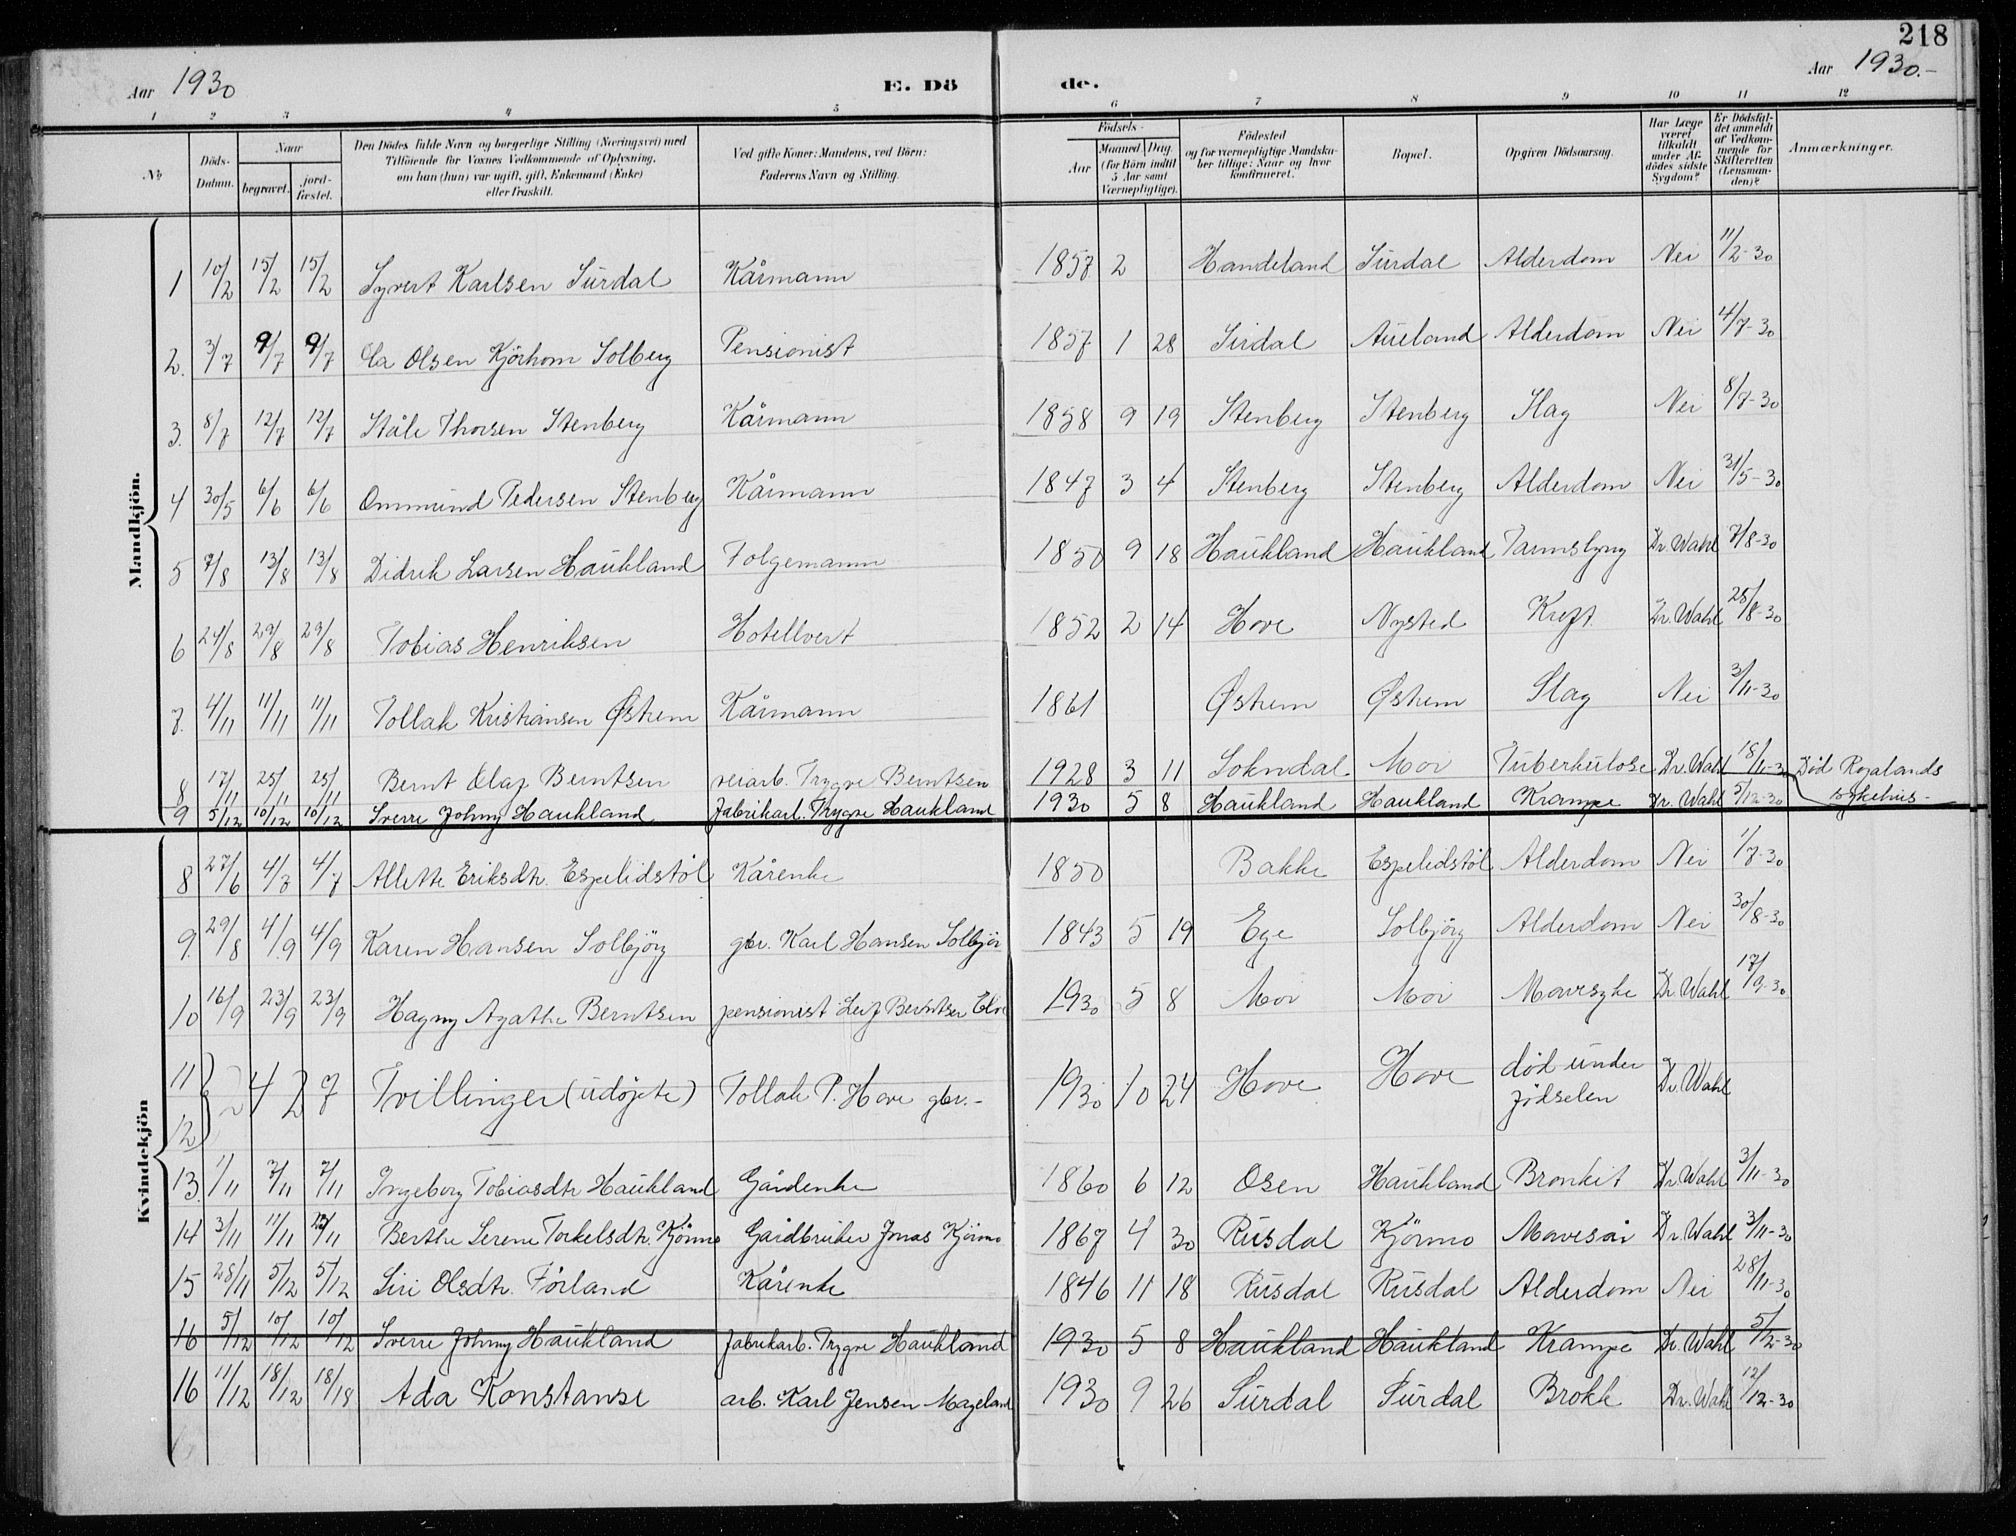 218
Aar 1930
E. Dö
de.
Aar 1930.-
1 2 3 4 5 6 7 8 9 10 11 12
No
Döds-Datum.
Naar
begravet.
jord-fæstet.
Den Dödes fulde Navn og borgerlige Stilling (Næringsvei) med Tilföiende for Voxnes Vedkommende af Oplysning, om han (hun) var ugift, gift, Enkemand (Enke) eller fraskilt.
Ved gifte Koner: Mandens, ved Börn: Faderens Navn og Stilling.
Födsels-
Aar
Maaned Dag. (for Börn indtil 5 Aar samt Værnepligtige).
Födested og for værnepligtige Mandskaber tillige: Naar og hvor konfirmeret.
Bopæl.
Opgiven Dödsaarsag.
Har Læge været tilkaldt under Afdödes sidste Sygdom?
Er Dödsfaldet anmeldt af Vedkommende for Skifteretten (Lensmanden)?
Anmærkninger.
Mandkjön.
1 10/2 15/2 15/2 Syvert Karlsen Surdal Kårmann 1857 2 Handeland Surdal Alderdom Nei 11/2-30
2. 3/7 9/7 9/7 Ola Olsen Kjörhom Solberg Pensionist 1857 1 28 Sirdal Aueland Alderdom Nei 4/7-30
3. 8/7 12/7 12/7 Ståle Thorsen Stenberg Kårmann 1858 9 19 Stenberg Stenberg Slag Nei 8/7-30
4 30/5 6/6 6/6 Ommund Pedersen Stenberg Kårmann 1847 3 4 Stenberg Stenberg Alderdom Nei 31/5-30
5 7/8 13/8 13/8 Didrik Larsen Haukland Folgemann 1850 9 18 Haukland Haukland Tarmslyng Dr. Wahl 7/8-30
6 24/8 29/8 29/8 Tobias Henriksen Hotellvert 1852 2 14 Hove Nysted Kreft Dr. Wahl 25/8-30
7. 4/11 11/11 11/11 Tollak Kristiansen Østrem Kårmann 1861 Østrem Østrem Slag Nei 3/11-30
8 17/11 25/11 25/11 Bernt Olaf Berntsen veiarb. Trygve Berntsen 1928 3 11 Sokndal Moi Tuberkulose Dr. Wahl 18/11-30 Död Rogalands sykehus-
9 5/12 10/12 10/12 Sverre Johny Haukland Fabrikarb. Trygve Haukland 1930 5 8 Haukland Haukland Krampe Dr. Wahl 5/12-30
Kvindekjön
8 27/6 4/7 4/7 Allette Eriksdtr. Espelidstöl Kårenke 1850 Bakke Espelidstöl Alderdom Nei 1/7-30
9. 29/8 4/9 4/9 Karen Hansen Solbjörg gbr. Karl Hansen Solbjör 1843 5 19 Ege Solbjörg Alderdom Nei 30/8-30
10 16/9 23/9 23/9 Hagny Agathe Berntsen pensionist Leif Berntsen 1930 5 8 Moi Moi Mavesyke Dr. Wahl 17/9-30
11
12 Tvillinger (udöpte) Tollak P. Hove gbr.- 1930 10 24 Hove Hove död under födselen Dr. Wahl
13. 1/11 7/11 7/11 Ingeborg Tobiasdtr Haukland Gårdenke 1860 6 12 Osen Haukland Bronkit Dr. Wahl 3/11-30
14 3/11 11/11 Berthe Serene Torkelsdtr. Kjörmo Gårdbruker Jonas Kjörmo 1867 4 30 Rusdal Kjörmo Mavesår Dr. Wahl 3/11-30
15 28/11 5/12 5/12 Siri Olsdtr. Förland Kårenke 1846 11 18 Rusdal Rusdal Alderdom Nei 28/11-30
16 5/12 10/12 10/12 Sverre Johny Haukland fabrikarb. Trygve Haukland 1930 5 8 Haukland Haukland Krampe Dr. Wahl 5/12-30
16 11/12 18/12 18/18 Ada Konstanse arb. Karl Jensen Mageland 1930 9 26 Surdal Surdal Brokk Dr. Wahl 12/12-30